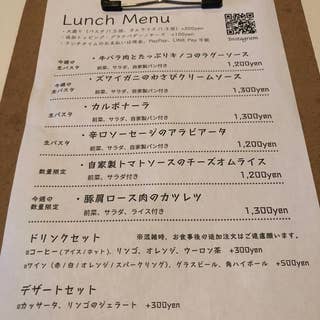 Lunch Menu
Instagram
今週の
生パスタ
・牛バラ肉とたっぷりキノコのラグーソース
前菜、サラダ、自家製パン付き 1,200yen
今週の
生パスタ
・ズワイガニのわさびクリームソース
前菜、サラダ、自家製パン付き 1,300yen
生パスタ
・カルボナーラ
前菜、サラダ、自家製パン付き 1,300yen
生パスタ
・辛口ソーセージのアラビアータ
前菜、サラダ、自家製パン付き 1,200yen
数量限定
・自家製トマトソースのチーズオムライス
前菜、サラダ付き 1,200yen
今週の
数量限定
・豚肩ロース肉のカツレツ
前菜、サラダ、ライス付き 1,300yen
ドリンクセット ※混雑時、お食事後の追加注文はご遠慮願います。
コーヒー(アイス/ホット)、リンゴ、オレンジ、ウーロン茶 +300yen
ワイン(赤/白/オレンジ/スパークリング)、グラスビール、角ハイボール +500yen
デザートセット
カッサータ、リンゴのジェラート +300yen